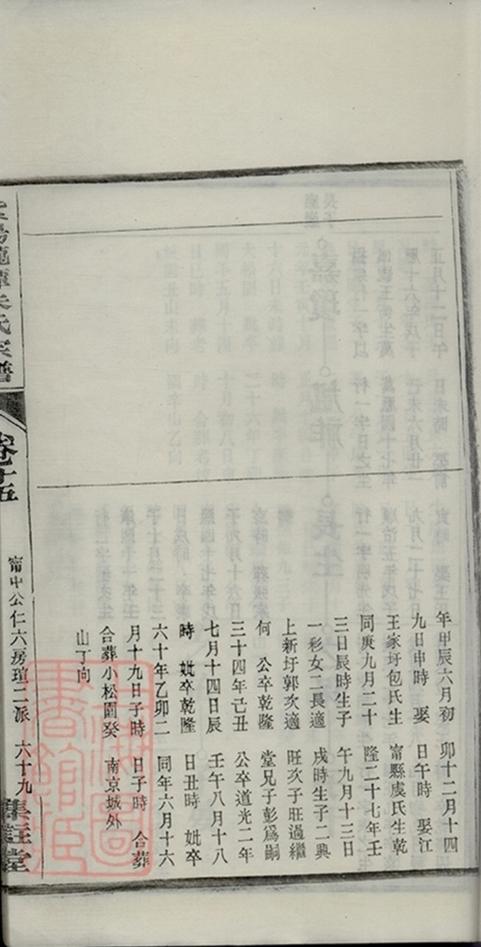 年甲辰六月初
九日申時 娶
王家圩包氏生
同庚九月二十
三日辰時生子
一彩女二長適
上新圩郭次適
何 公卒乾隆
三十四年己丑
七月十四日辰
時 妣卒乾隆
六十年乙卯二
月十九日子時
合葬小松園癸
山丁向
卯十二月十四
日午時 娶江
甯縣虞氏生乾
隆二十七年壬
午九月十三日
戌時生子二典
旺次子旺過繼
堂兄子彭爲嗣
公卒道光二年
壬午八月十八
日丑時 妣卒
同年六月十六
日子時 合葬
南京城外
氏宗譜
卷十五
甯中公仁六房瑄二派 六十九
堂